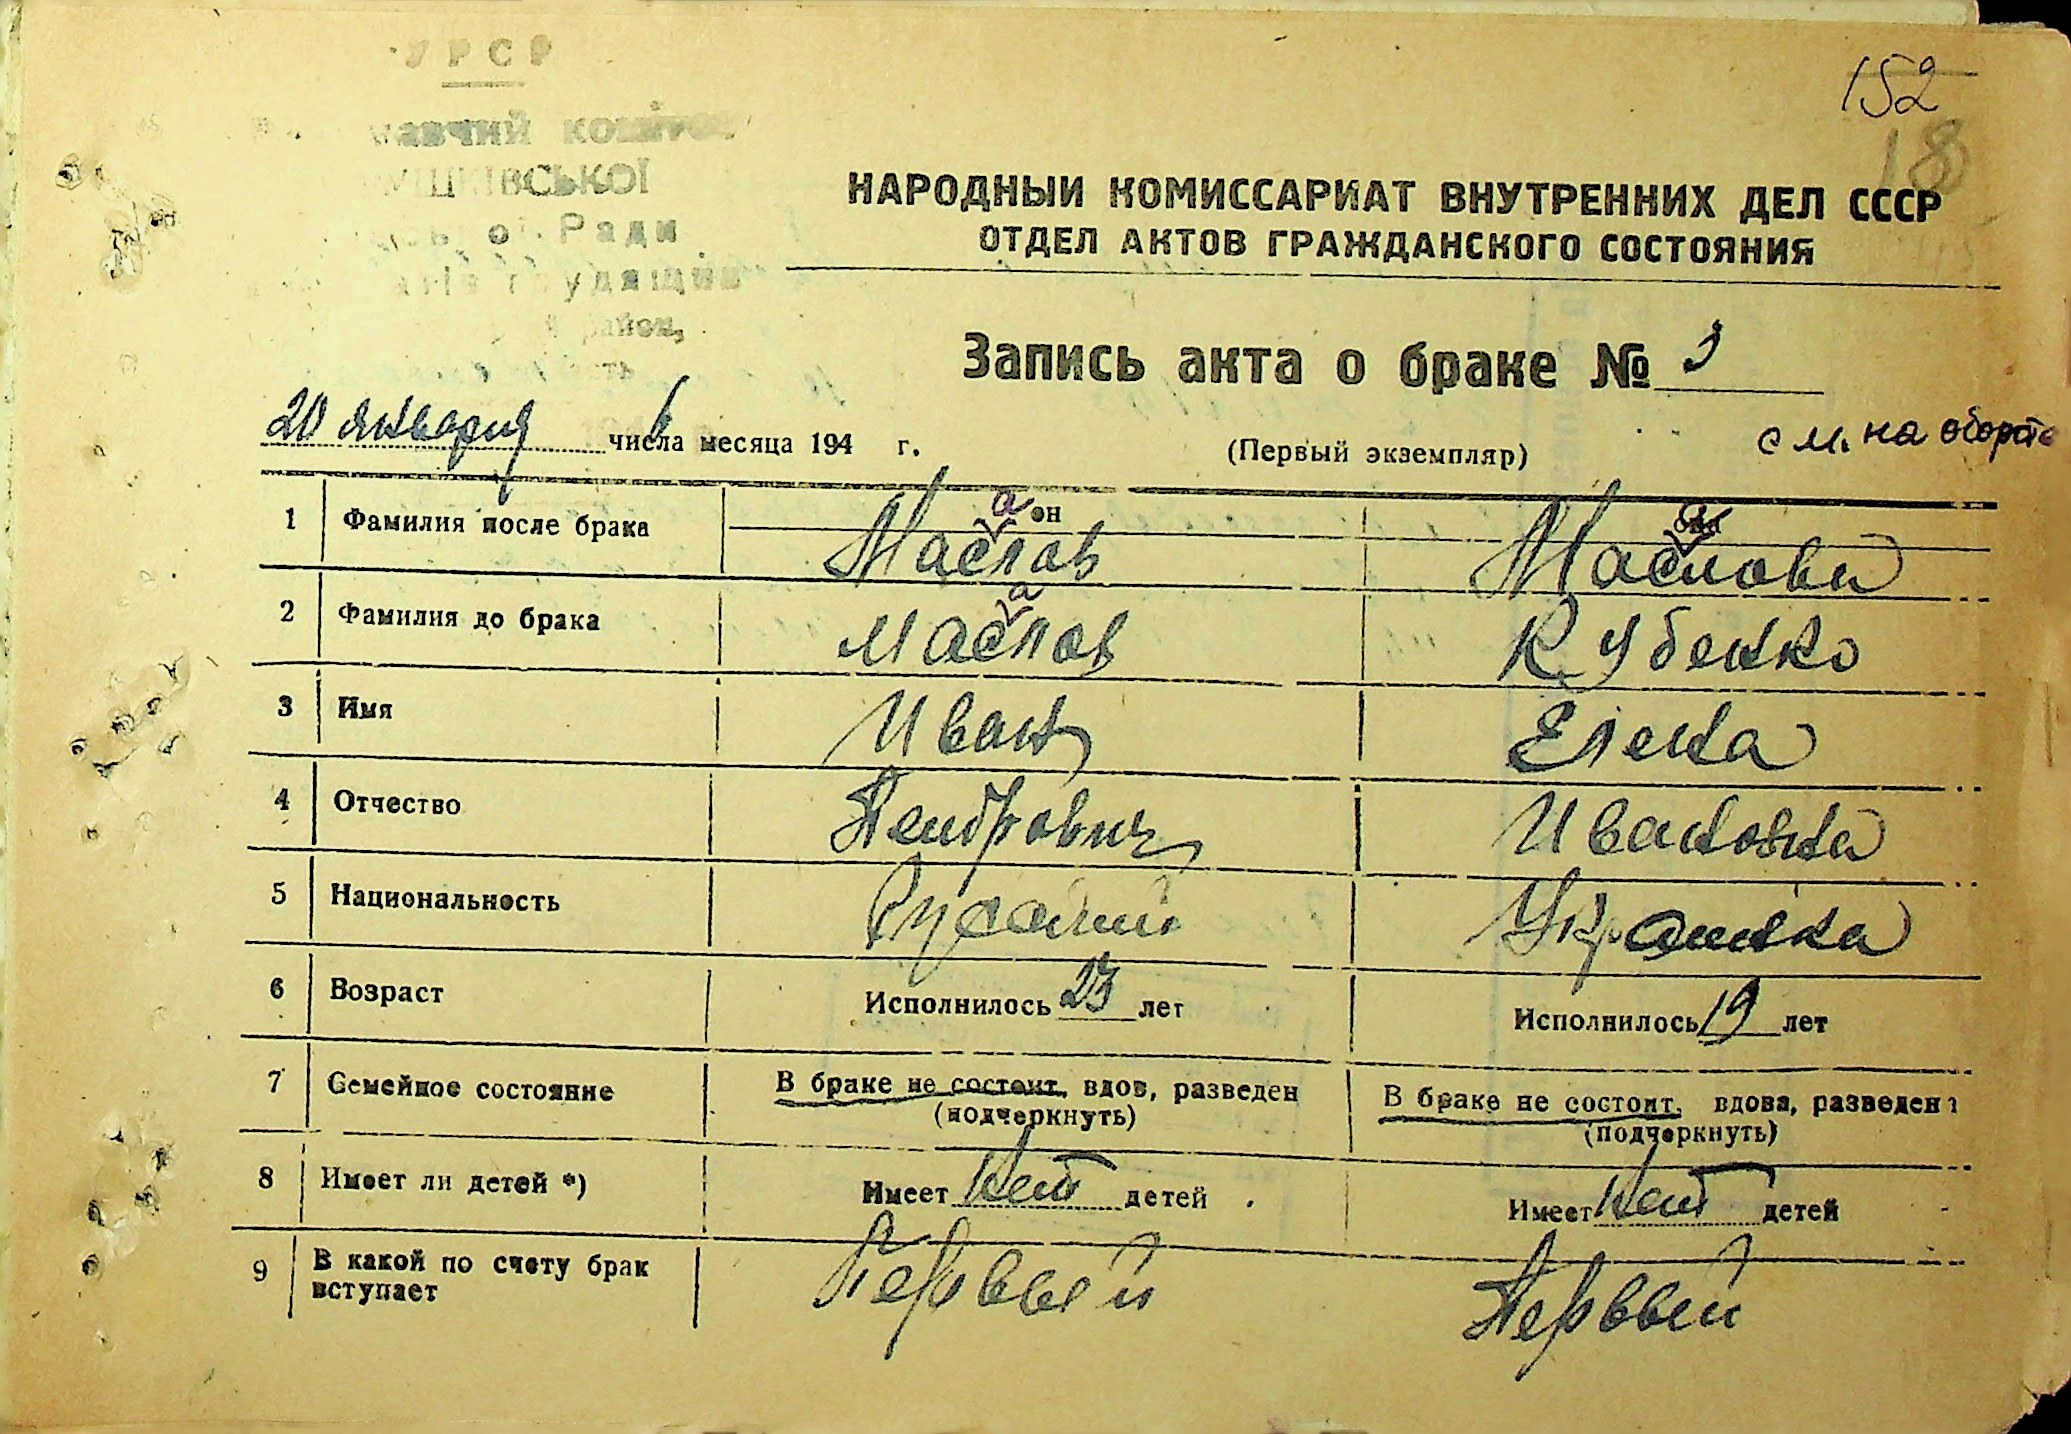 УРСР
152
18
УШКІВСЬКОЇ
Ради
район,
НАРОДНЫЙ КОМИССАРИАТ ВНУТРЕННИХ ДЕЛ СССР
ОТДЕЛ АКТОВ ГРАЖДАНСКОГО СОСТОЯНИЯ
Запись акта о браке № 3
20 января числа месяца 1946 г.
(Первый экземпляр)
см. на обороте
он
она
1 Фамилия после брака Масалов Масалова
2 Фамилия до брака Масалов Кубенко
3 Имя Иван Елена
4 Отчество Петрович Ивановна
5 Национальность Русский Украинка
6 Возраст Исполнилось 23 лет Исполнилось 19 лет
7 Семейное состояние В браке не состоит, вдов, разведен В браке не состоит, вдова, разведена
(подчеркнуть) (подчеркнуть)
8 Имеет ли детей *) Имеет нет детей Имеет нет детей
9 В какой по счету брак Первый Первый
вступает